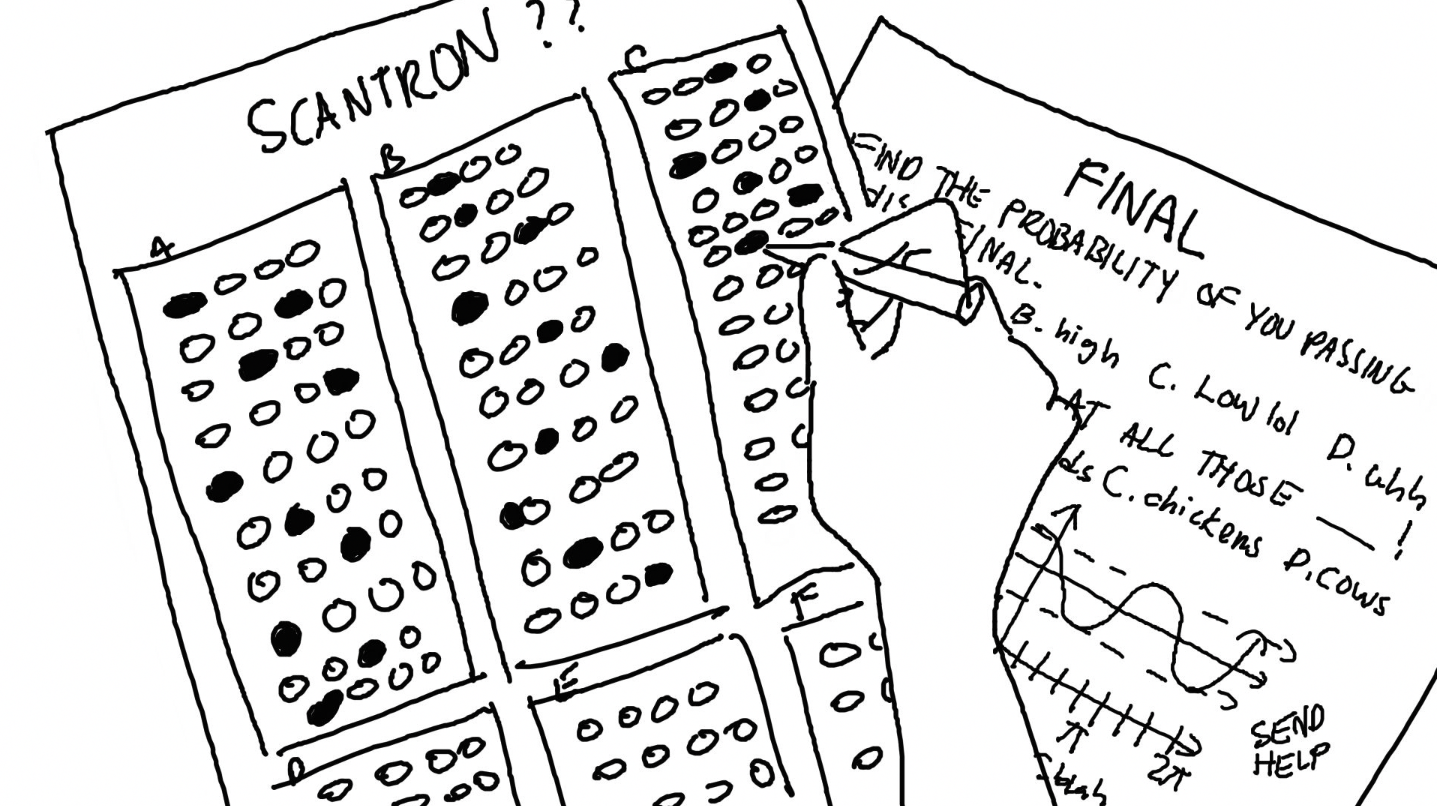 SCANTRON ??
A
B
C
D
E
F
FINAL
FIND THE PROBABILITY OF YOU PASSING
FINAL.
B. high C. Low lol D. uhh
AT ALL THOSE __ !
ds C. chickens D. cows
π
2π
SEND
HELP
blah